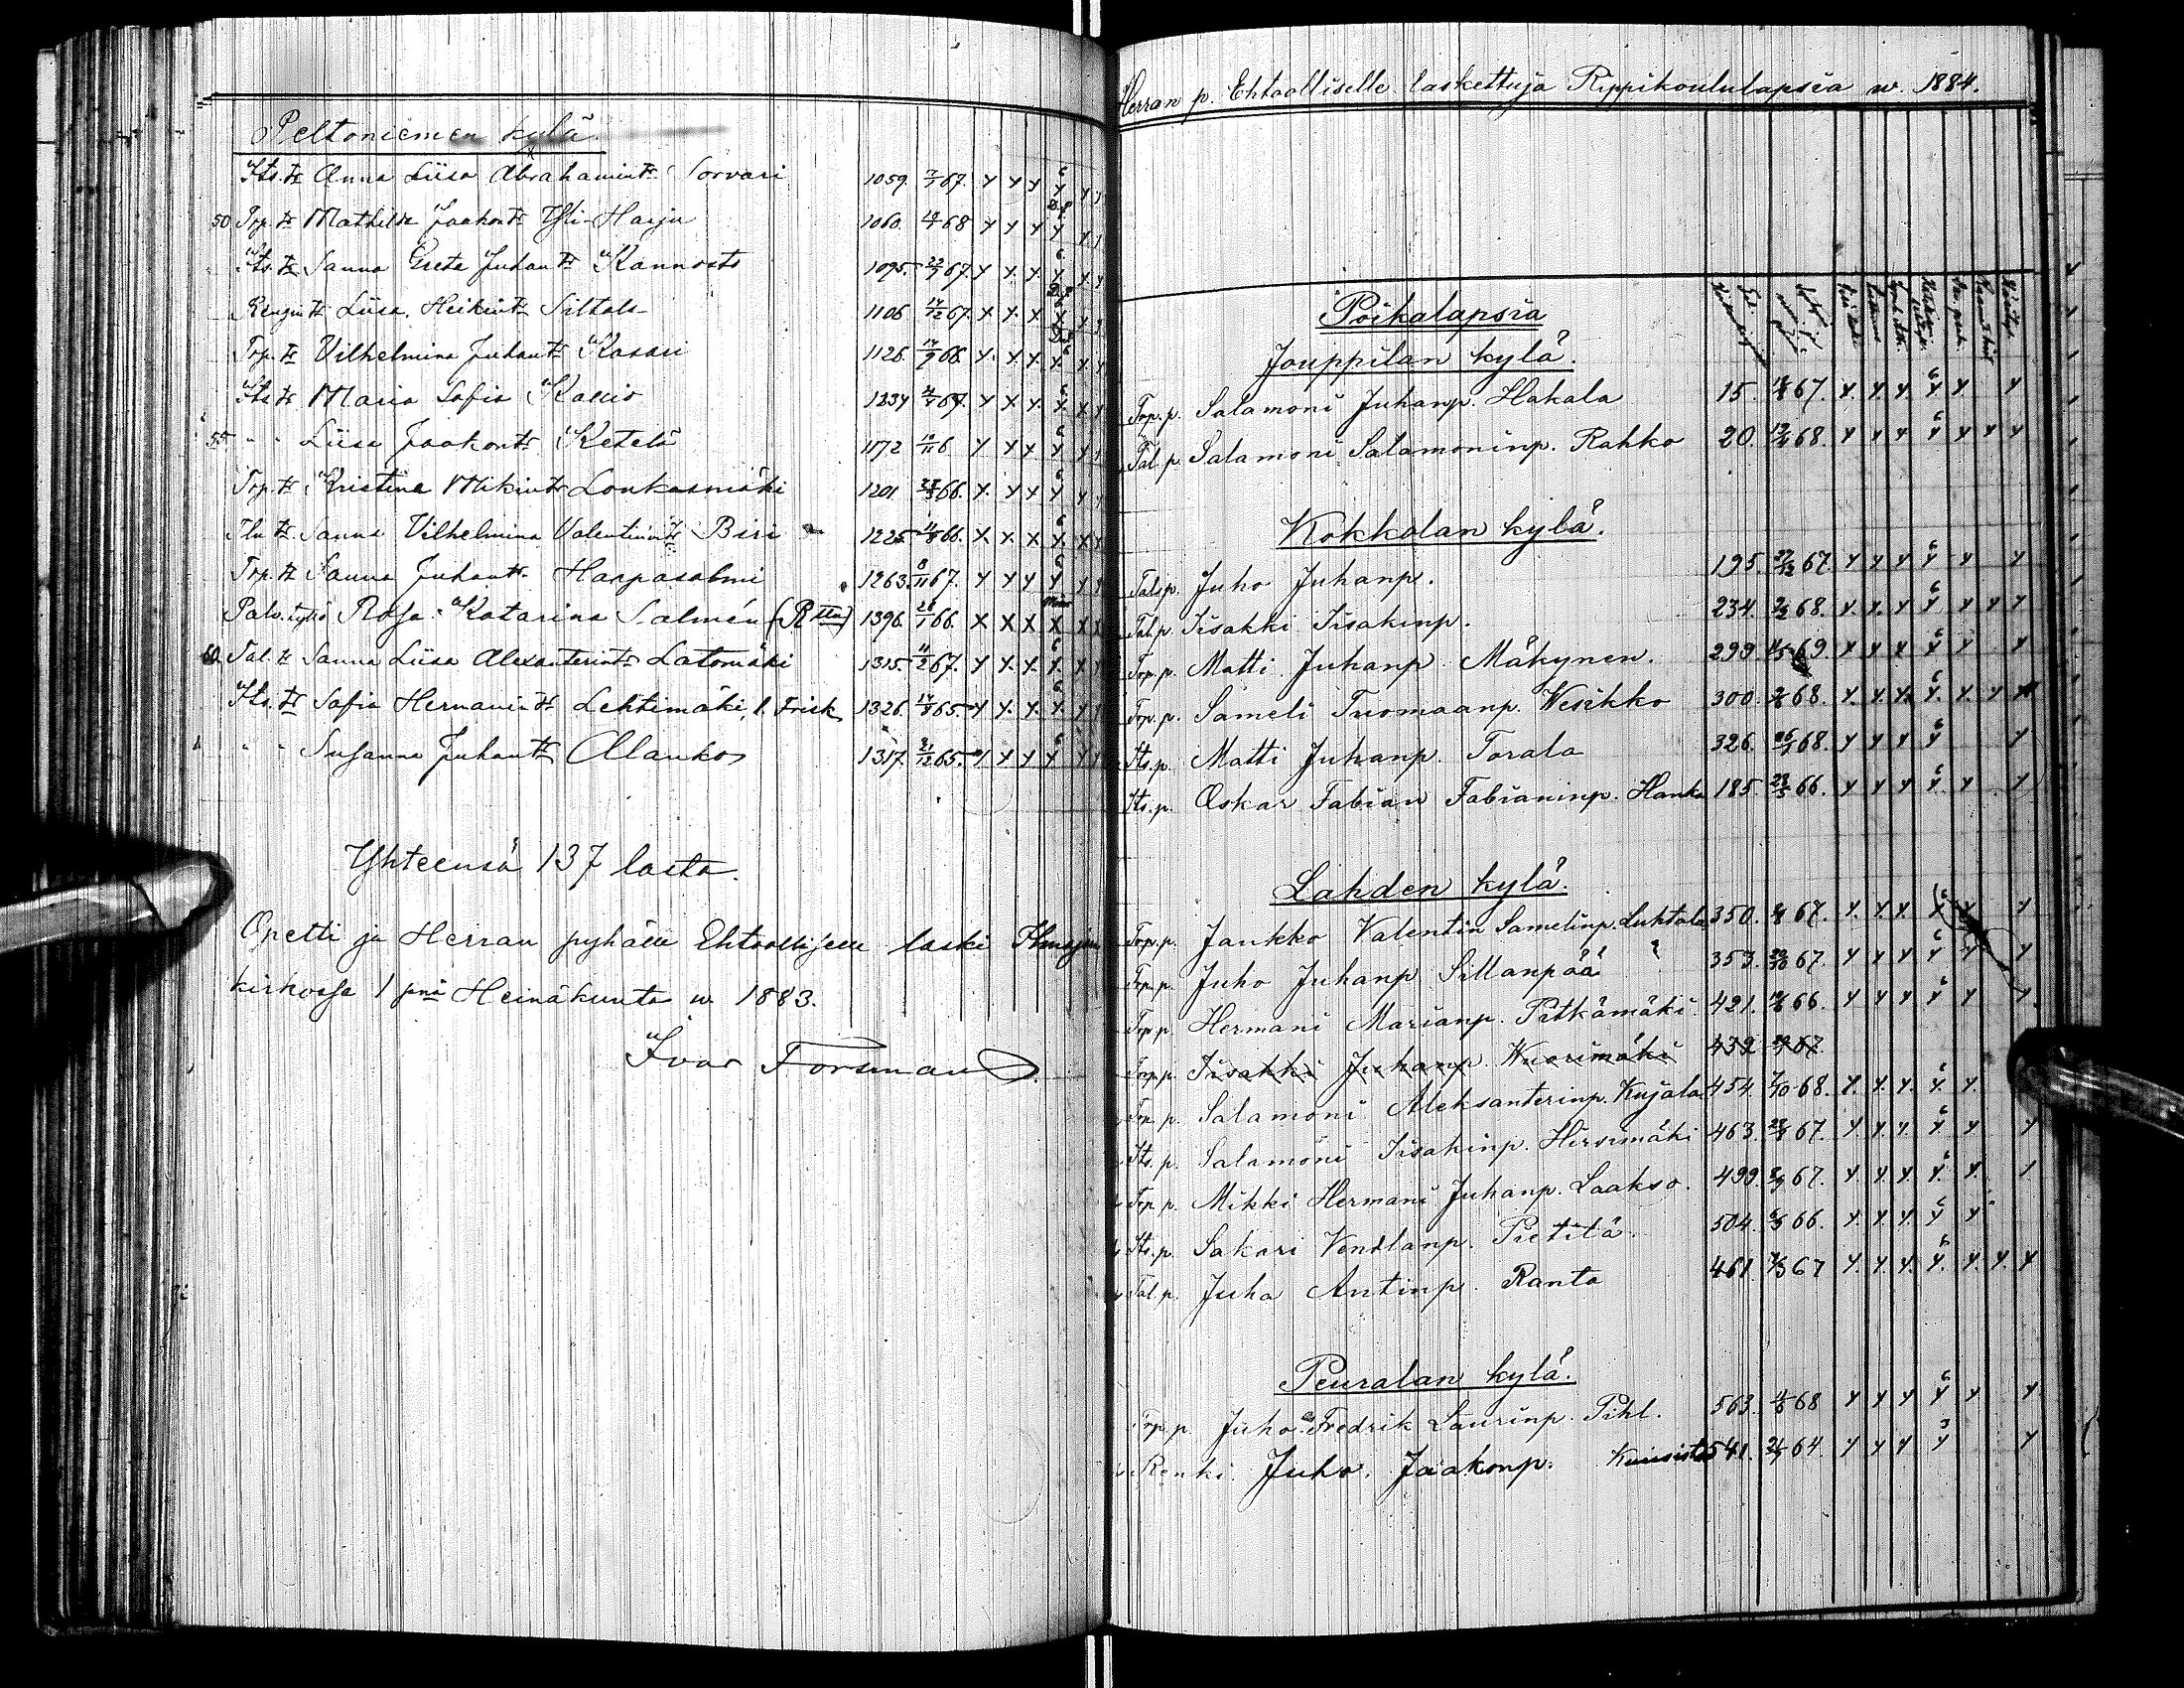 Peltoniemen kylä.
Its. tr Anna Liisa Abrahamintr Sorvari 1059. 7/7 67. y y y 6 y y y
50 Trp. tr Mathilda Jaakontr Yli-Harju 1060. 68 y y y y y y
Its. tr Sanna Greta Juhantr Kannosto 1095. 22/9 67. y y. y. 6 y. y. y
Rengin tr Liisa Heikintr Siltala 1106 14/12 67. x x. x. 6 x x y
Trp. tr Vilhelmina Juhantr Kasari 1126. 14/9 66. y. y. y. 6 y. y y
Its tr Maria Sofia Kallio 1234 67. y x y. 6 y. x y
55 " " Liisa Jaakontr Ketelä 1172 y y x. 6 y y y
Trp. tr Kristina Mikintr Loukasmäki 1201 66. y. y x 6 y y y
Tln tr. Sanna Vilhelmina Valentinintr Biri 1225 11/8 66. x. x. x 6 x. x x
Trp. tr Sanna Juhantr. Harpasalmi 1263. 8/11 67. y y y 6 y y y
Palv. tyttö Rosa Katarina Salmén (Rlla) 1396. 26/1 66. x x x x x x
60 Tal. tr Sanna Liisa Alexanterintr Latomäki 1315. 11/2 67. y y. y. 6 y. y y
Its. tr Sofia Hermanintr Lehtimäki, l. Frisk 1326. 14/8 65. y y. y. 6 y. y y
" " Susanna Juhantr Alanko 1317. 21/12 65. y y y 6 y y y
Yhteensä 137 lasta.
Opetti ja Herran pyhälle Ehtoolliselle laski Ilmajoen
kirkossa 1 pnä Heinäkuuta w. 1883.
Ivar Forsman
Herran p. Ehtoolliselle laskettuja Rippikoululapsia w. 1884.
Poikalapsia
Jouppilan kylä.
Trp. p. Salamoni Juhanp. Hakala 15. 67. y. y. y. 6 y. y. y
Tal. p. Salamoni Salamoninp. Rahko 20. 68. y y y 6 y y y y
Kokkolan kylä.
Tal. p. Juho Juhanp. 195. 27/12 67. y y y 6 y y y
Tal. p. Iisakki Iisakinp. 234. 68. y. y. y 6 y y y y
Trp. p. Matti Juhanp. Mäkynen. 299. 69. y y y 6 y y y
Trp. p. Sameli Tuomaanp. Wesikko 300. 68. y. y. y. 6 y. y. y
Its. p. Matti Juhanp. Torala 326. 68. y y y 6 y y
Its. p. Oskar Fabian Fabianinp. Hanka 185. 23/3 66. y y y 6 y y y
Lahden kylä.
Trp. p. Jaukko Valentin Samelinp. Luhtala 350. 67. y. y. y. 6 y y y
Trp. p. Juho Juhanp. Sillanpää 353. 67. y y y 6 y y y
Trp. p. Hermani Marianp. Pitkämäki. 421. 66. y y y 6 y y y
Trp. p. Iisakki Juhanp. Wuorimäki 432 67
Trp. p. Salamoni Aleksanterinp. Kujala 454. 7/10 68. y. y. y. 6 y. y.
Its. p. Salamoni Iisakinp. Hirsimäki 463. 67. y. y. y. 6 y. y. y
Trp. p. Mikki Hermani Juhanp. Laakso. 499. 67. y. y y 6 y. y. y
Its. p. Sakari Vendlanp. Pietilä. 504. 66. y. y. y. 6 y y
Tal. p. Juha Antinp. Ranta 461. 67 y. y. y. 6 y. y. y. y
Peuralan kylä.
Trp. p. Juho Fredrik Laurinp. Pihl. 563. 68 y y y 6 y y y
Renki Juho Jaakonp. Kuusisto 541. 64. y y y 3 y y